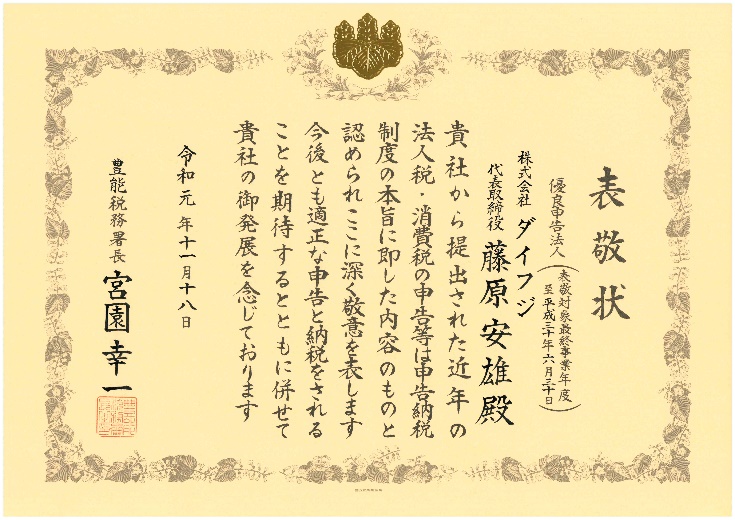 表敬状
優良申告法人
(表敬対象最終事業年度
至平成三十年六月三十日)
株式会社 ダイフジ
代表取締役 藤原安雄殿
貴社から提出された近年の
法人税・消費税の申告等は申告納税
制度の本旨に即した内容のものと
認められここに深く敬意を表します
今後とも適正な申告と納税をされる
ことを期待するとともに併せて
貴社の御発展を念じております
令和元年十一月十八日
豊能税務署長 宮園幸一